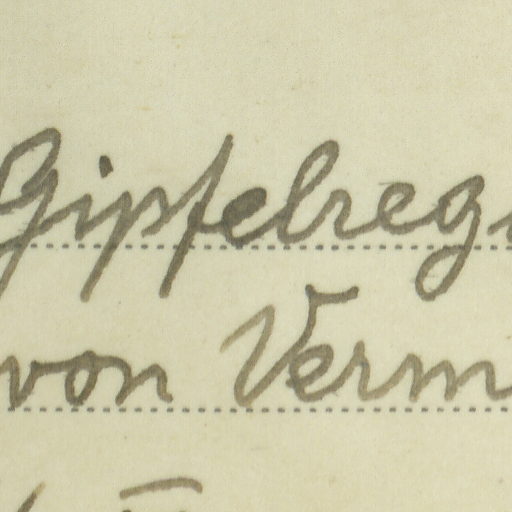 Gipfelreg
von Verm